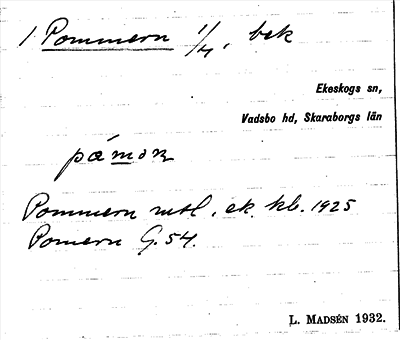 1 Pommern 1/4, bek
Ekeskogs sn,
Vadsbo hd, Skaraborgs län
påmən
Pommern mtl, ek. kb. 1925
Pomern G. 54.
L. MADSÉN 1932.